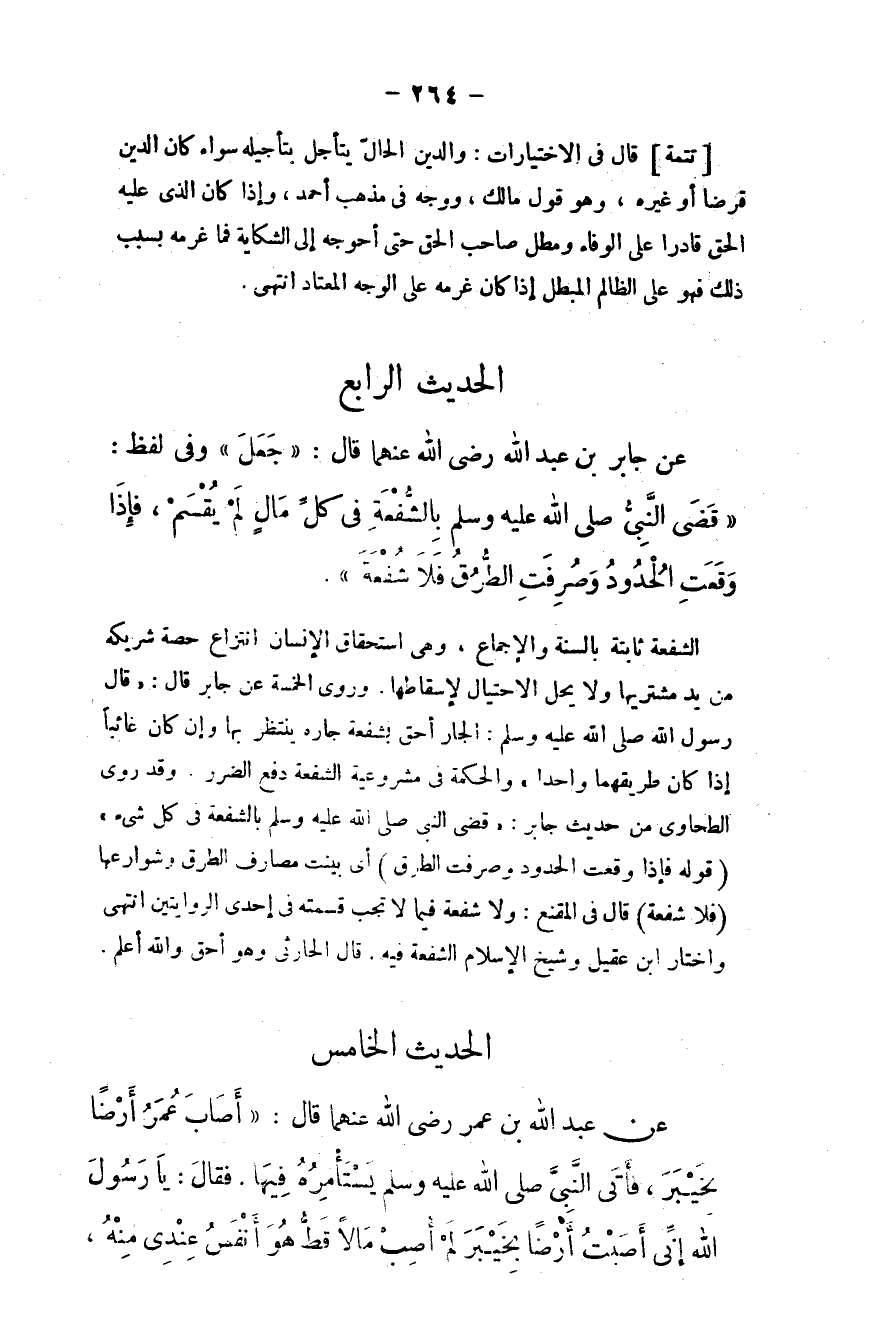 - ٢٦٤ -
[ تتمة ] قال فى الاختيارات : والدين الحالّ يتأجل بتأجيله سواء كان الدين
قرضا أو غيره ، وهو قول مالك ، ووجه فى مذهب أحمد ، وإذا كان الذى عليه
الحق قادرا على الوفاء ومطل صاحب الحق حتى أحوجه إلى الشكاية فما غرمه بسبب
ذلك فهو على الظالم المبطل إذا كان غرمه على الوجه المعتاد انتهى .
الحديث الرابع
عن جابر بن عبد الله رضى الله عنهما قال : « جَعَلَ » وفى لفظ :
« قَضَى النَّبِيُّ صلى الله عليه وسلم بِالشُّفْعَةِ فى كلِّ مَالٍ لَمْ يُقْسَمْ ، فإِذَا
وَقَعَتِ الْحُدُودُ وَصُرِفَتِ الطُّرُقُ فَلَا شُفْعَةَ » .
الشفعة ثابتة بالسنة والإجماع ، وهى استحقاق الإنسان انتزاع حصة شريكه
من يد مشتريها ولا يحل الاحتيال لإسقاطها . وروى الخمسة عن جابر قال : « قال
رسول الله صلى الله عليه وسلم : الجار أحق بشفعة جاره ينتظر بها وإن كان غائباً
إذا كان طريقهما واحدا » والحكمة فى مشروعية الشفعة دفع الضرر . وقد روى
الطحاوى من حديث جابر : « قضى النبى صلى الله عليه وسلم بالشفعة فى كل شىء »
( قوله فإذا وقعت الحدود وصرفت الطرق ) أى بينت مصارف الطرق وشوارعها
(فلا شفعة) قال فى المقنع : ولا شفعة فيما لا تجب قسمته فى إحدى الروايتين انتهى
واختار ابن عقيل وشيخ الإسلام الشفعة فيه . قال الحارثى وهو أحق والله أعلم .
الحديث الخامس
عن عبد الله بن عمر رضى الله عنهما قال : « أَصَابَ عُمَرُ أَرْضًا
بِخَيْبَرَ ، فَأَتَى النَّبِيَّ صلى الله عليه وسلم يَسْتَأْمِرُهُ فِيهَا . فقالَ : يَا رَسُولَ
الله إنِّى أَصَبْتُ أَرْضًا بِخَيْبَرَ لَمْ أُصِبْ مَالاً قَطُّ هُوَ أَنْفَسُ عِنْدِى مِنْهُ ،